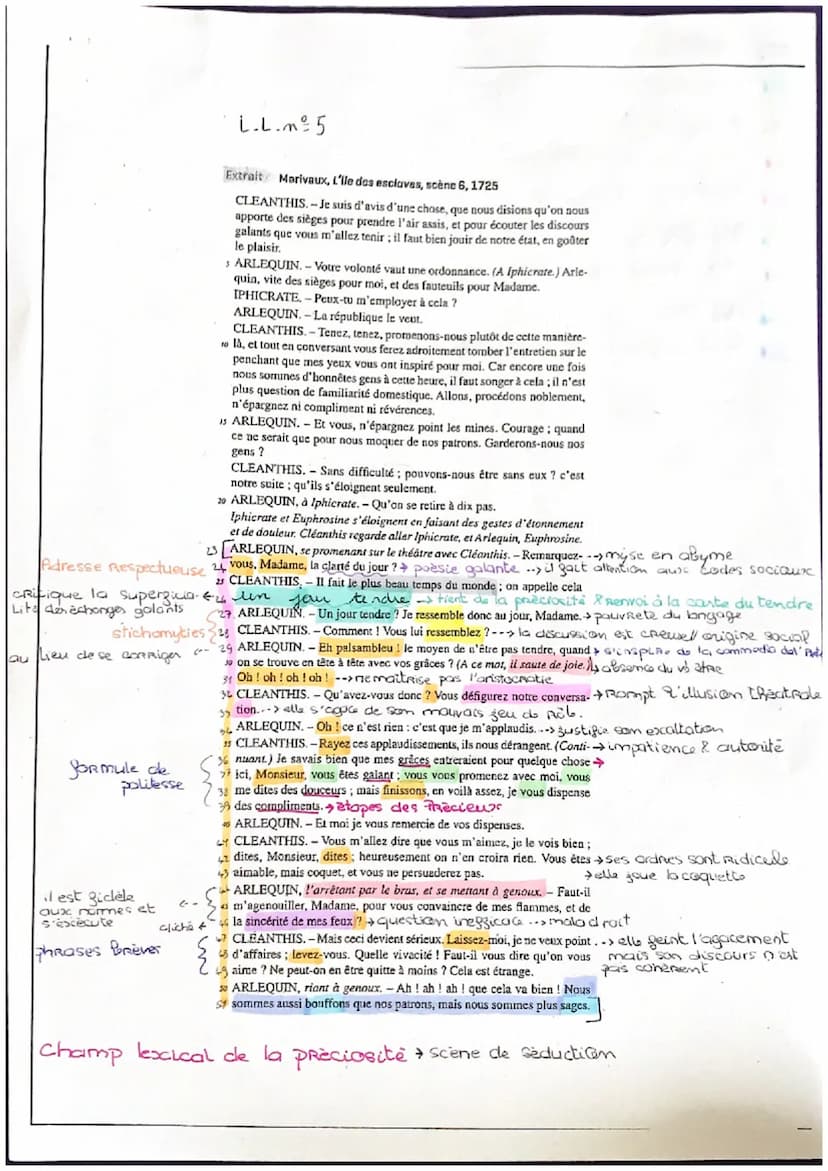 L.L. n° 5
Extrait Marivaux, L'Île des esclaves, scène 6, 1725
CLEANTHIS. – Je suis d'avis d'une chose, que nous disions qu'on nous
apporte des sièges pour prendre l'air assis, et pour écouter les discours
galants que vous m'allez tenir ; il faut bien jouir de notre état, en goûter
le plaisir.
5 ARLEQUIN. – Votre volonté vaut une ordonnance. (A Iphicrate.) Arle-
quin, vite des sièges pour moi, et des fauteuils pour Madame.
IPHICRATE. – Peux-tu m'employer à cela ?
ARLEQUIN. – La république le veut.
CLEANTHIS. – Tenez, tenez, promenons-nous plutôt de cette manière-
10 là, et tout en conversant vous ferez adroitement tomber l'entretien sur le
penchant que mes yeux vous ont inspiré pour moi. Car encore une fois
nous sommes d'honnêtes gens à cette heure, il faut songer à cela ; il n'est
plus question de familiarité domestique. Allons, procédons noblement,
n'épargnez ni compliment ni révérences.
15 ARLEQUIN. – Et vous, n'épargnez point les mines. Courage ; quand
ce ne serait que pour nous moquer de nos patrons. Garderons-nous nos
gens ?
CLEANTHIS. – Sans difficulté ; pouvons-nous être sans eux ? c'est
notre suite ; qu'ils s'éloignent seulement.
20 ARLEQUIN, à Iphicrate. – Qu'on se retire à dix pas.
Iphicrate et Euphrosine s'éloignent en faisant des gestes d'étonnement
et de douleur. Cléanthis regarde aller Iphicrate, et Arlequin, Euphrosine.
23 [ARLEQUIN, se promenant sur le théâtre avec Cléanthis. – Remarquez- --→ myse en abyme
Adresse respectueuse 24 vous, Madame, la clarté du jour ? → poésie galante --→ il fait attention aux codes sociaux
25 CLEANTHIS. – Il fait le plus beau temps du monde ; on appelle cela
critique la superficia- ← 26 un jour tendre → tient de la préciosité & renvoi à la carte du tendre
lité des échanges galants 27 ARLEQUIN. – Un jour tendre ? Je ressemble donc au jour, Madame. → pauvreté du langage
stichomyties 28 CLEANTHIS. – Comment ! Vous lui ressemblez ? --→ la discussion est creuse / origine social
au lieu de se corriger ←-- 29 ARLEQUIN. – Eh palsambleu ! le moyen de n'être pas tendre, quand → s'inspire de la commedia dell'
30 on se trouve en tête à tête avec vos grâces ? (A ce mot, il saute de joie.) → absence du
31 Oh ! oh ! oh ! oh ! --→ ne maîtrise pas l'aristocratie
32 CLEANTHIS. – Qu'avez-vous donc ? Vous défigurez notre conversa- → Rompt l'illusion théatrale
33 tion. --→ elle s'agace de son mauvais jeu de rôle.
34 ARLEQUIN. – Oh ! ce n'est rien : c'est que je m'applaudis. --→ justifie son exaltation
35 CLEANTHIS. – Rayez ces applaudissements, ils nous dérangent. (Conti- → impatience & autorité
36 nuant.) Je savais bien que mes grâces entreraient pour quelque chose →
formule de politesse 37 ici, Monsieur, vous êtes galant ; vous vous promenez avec moi, vous
38 me dites des douceurs ; mais finissons, en voilà assez, je vous dispense
39 des compliments. → étapes des Précieux
40 ARLEQUIN. – Et moi je vous remercie de vos dispenses.
41 CLEANTHIS. – Vous m'allez dire que vous m'aimez, je le vois bien ;
42 dites, Monsieur, dites ; heureusement on n'en croira rien. Vous êtes → ses ordres sont ridicule
43 aimable, mais coquet, et vous ne persuaderez pas. → elle joue la coquette
44 ARLEQUIN, l'arrêtant par le bras, et se mettant à genoux. – Faut-il
il est fidèle aux normes et s'éxécute ←-- 45 m'agenouiller, Madame, pour vous convaincre de mes flammes, et de
cliché ← 46 la sincérité de mes feux ? → question inefficace --→ maladroit
47 CLEANTHIS. – Mais ceci devient sérieux. Laissez-moi, je ne veux point --→ elle feint l'agacement
phrases brèves 48 d'affaires ; levez-vous. Quelle vivacité ! Faut-il vous dire qu'on vous mais son discours n'est
49 aime ? Ne peut-on en être quitte à moins ? Cela est étrange. pas cohérent
50 ARLEQUIN, riant à genoux. – Ah ! ah ! ah ! que cela va bien ! Nous
51 sommes aussi bouffons que nos patrons, mais nous sommes plus sages.]
Champ lexical de la préciosité → scène de séduction